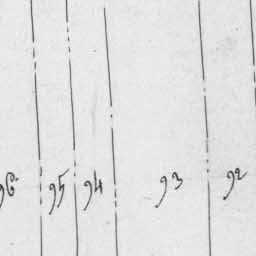 96 95 94 93 92